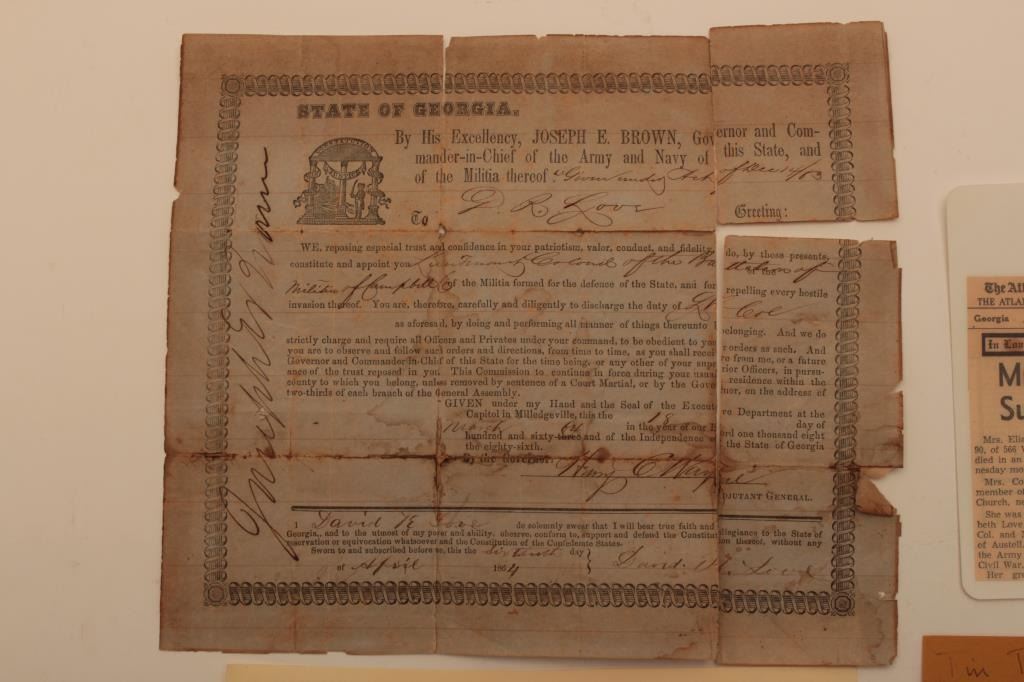 STATE OF GEORGIA.
By His Excellency, JOSEPH E. BROWN, Governor and Com-
mander-in-Chief of the Army and Navy of this State, and
of the Militia thereof Given under Act of Dec 14/63
To D. R. Love Greeting:
WE, reposing especial trust and confidence in your patriotism, valor, conduct, and fidelity, do, by these presents,
constitute and appoint you Lieutenant Colonel of the Battalion of
Militia of Campbell Co of the Militia formed for the defence of the State, and for repelling every hostile
invasion thereof. You are, therefore, carefully and diligently to discharge the duty of Lt Col
as aforesaid, by doing and performing all manner of things thereunto belonging. And we do
strictly charge and require all Officers and Privates under your command, to be obedient to your orders as such. And
you are to observe and follow such orders and directions, from time to time, as you shall receive from me, or a future
Governor and Commander-in-Chief of this State for the time being, or any other of your superior Officers, in pursu-
ance of the trust reposed in you. This Commission to continue in force during your usual residence within the
county to which you belong, unless removed by sentence of a Court Martial, or by the Governor, on the address of
two-thirds of each branch of the General Assembly.
GIVEN under my Hand and the Seal of the Executive Department at the
Capitol in Milledgeville, this the 18 day of
March 64 in the year of our Lord one thousand eight
hundred and sixty-three and of the Independence of the State of Georgia
the eighty-sixth.
By the Governor: Henry C. Wayne
ADJUTANT GENERAL.
Joseph E. Brown
I David R Love do solemnly swear that I will bear true faith and allegiance to the State of
Georgia, and to the utmost of my power and ability, observe, conform to, support and defend the Constitution thereof, without any
reservation or equivocation whatsoever and the Constitution of the Confederate States.
Sworn to and subscribed before me, this the Sixteenth day
of April 1864 David R. Love
The Atl
THE ATLAN
Georgia
In Lov
M
Su
Mrs. Eli
90, of 566 W
died in an
nesday mo
Mrs. Co
member of
Church, n
She was
beth Love
Col. and
of Austell,
the Army
Civil War.
Her gre
Tin T